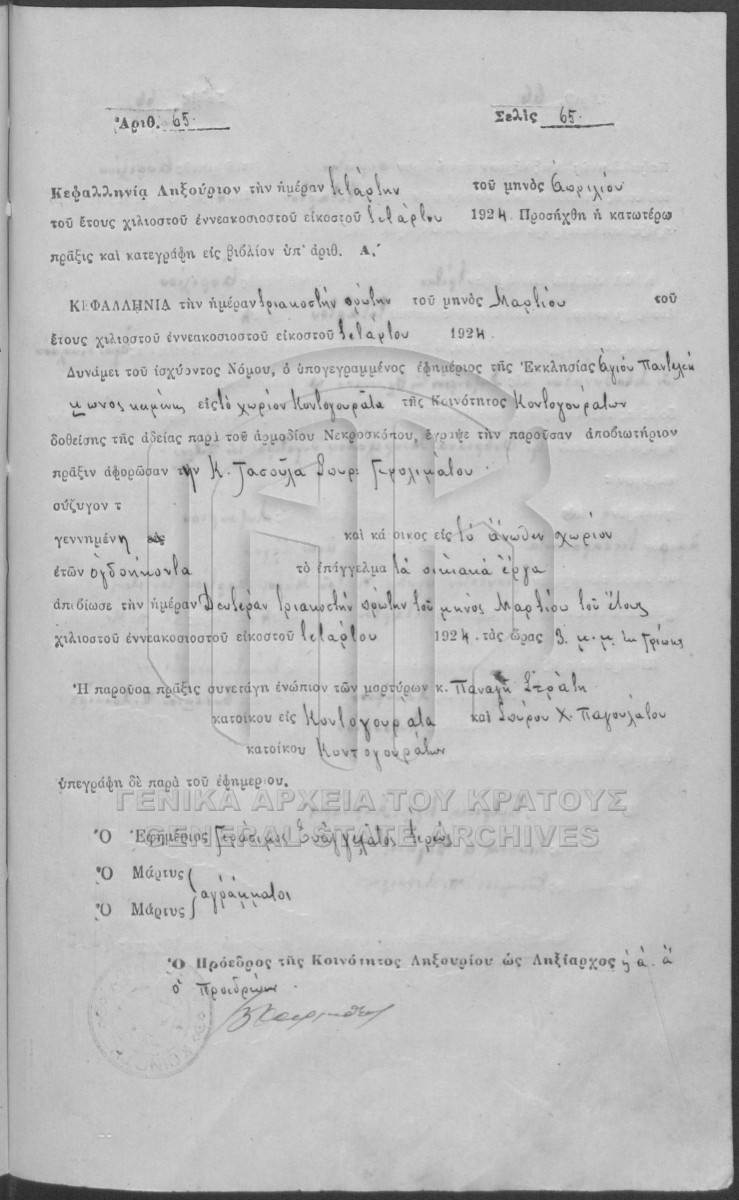 Ἀριθ. 65. Σελὶς 65.
Κεφαλληνία Ληξούριον τὴν ἡμέραν τετάρτην τοῦ μηνὸς Ἀπριλίου
τοῦ ἔτους χιλιοστοῦ ἐννεακοσιοστοῦ εἰκοστοῦ τετάρτου 1924. Προσήχθη ἡ κατωτέρω
πρᾶξις καὶ κατεγράφη εἰς βιβλίον ὑπ' ἀριθ. Α.'
ΚΕΦΑΛΛΗΝΙΑ τὴν ἡμέραν τριακοστὴν πρώτην τοῦ μηνὸς Μαρτίου τοῦ
ἔτους χιλιοστοῦ ἐννεακοσιοστοῦ εἰκοστοῦ τετάρτου 1924.
Δυνάμει τοῦ ἰσχύοντος Νόμου, ὁ ὑπογεγραμμένος ἐφημέριος τῆς Ἐκκλησίας Ἁγίου Παντελεή
μωνος εἰς τὸ χωρίον Κοντογουράτα τῆς Κοινότητος Κοντογουράτων
δοθείσης τῆς ἀδείας παρὰ τοῦ ἁρμοδίου Νεκροσκόπου, ἔγραψε τὴν παροῦσαν ἀποβιωτήριον
πρᾶξιν ἀφορῶσαν τὴν Κ. Τασούλα Σπυρ. Γερολιμάτου.
σύζυγον τ
γεννημένη καὶ κάτοικος εἰς τὸ ἄνωθεν χωρίον
ἐτῶν ὀγδοήκοντα τὸ ἐπάγγελμα τὰ οἰκιακὰ ἔργα
ἀπεβίωσε τὴν ἡμέραν Δευτέραν τριακοστὴν πρώτην τοῦ μηνὸς Μαρτίου τοῦ ἔτους
χιλιοστοῦ ἐννεακοσιοστοῦ εἰκοστοῦ τετάρτου 1924. τὰς ὥρας 3. μ.μ.
Ἡ παροῦσα πρᾶξις συνετάγη ἐνώπιον τῶν μαρτύρων κ. Παναγῆ Στράτη
κατοίκου εἰς Κοντογουράτα καὶ Σπύρου Χ. Παγουλάτου
κατοίκου Κοντογουράτων
ὑπεγράφη δὲ παρὰ τοῦ ἐφημερίου.
ΓΕΝΙΚΑ ΑΡΧΕΙΑ ΤΟΥ ΚΡΑΤΟΥΣ
GENERAL STATE ARCHIVES
Ὁ Ἐφημέριος Γεράσιμος Εὐαγγελάτος ἱερεὺς
Ὁ Μάρτυς
ἀγράμματοι
Ὁ Μάρτυς
Ὁ Πρόεδρος τῆς Κοινότητος Ληξουρίου ὡς Ληξίαρχος
ὁ Προεδρεύων